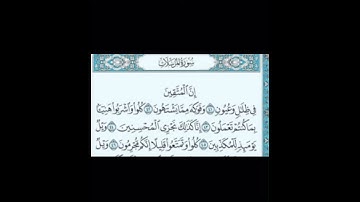 سورة المرسلات
إِنَّ ٱلْمُتَّقِينَ
فِى ظِلَٰلٍ وَعُيُونٍ ٤١ وَفَوَٰكِهَ مِمَّا يَشْتَهُونَ ٤٢ كُلُوا۟ وَٱشْرَبُوا۟ هَنِيٓـًٔۢا
بِمَا كُنتُمْ تَعْمَلُونَ ٤٣ إِنَّا كَذَٰلِكَ نَجْزِى ٱلْمُحْسِنِينَ ٤٤ وَيْلٌ
يَوْمَئِذٍ لِّلْمُكَذِّبِينَ ٤٥ كُلُوا۟ وَتَمَتَّعُوا۟ قَلِيلًا إِنَّكُم مُّجْرِمُونَ ٤٦ وَيْلٌ